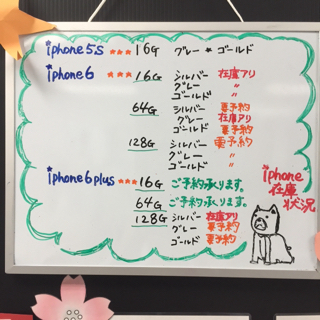 iphone 5s ★★★ 16G グレー ★ ゴールド
iphone 6 ★★★ 16G シルバー 在庫アリ
グレー 〃
ゴールド 〃
64G シルバー 要予約
グレー 在庫アリ
ゴールド 要予約
128G シルバー 要予約
グレー 〃
ゴールド 〃
iphone 6 plus ★★★ 16G ご予約承ります。
64G ご予約承ります。
128G シルバー 在庫アリ
グレー 要予約
ゴールド 要予約
iphone
在庫
状況